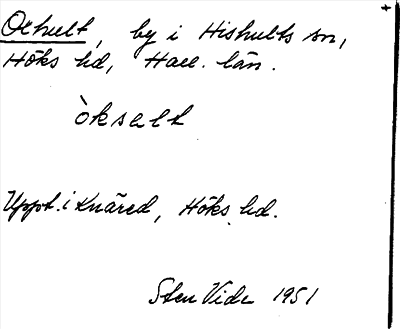 Öxhult, by i Hishults sn,
Höks hd, Hall. län.
òksalt
Uppt. i Knäred, Höks hd.
Sten Vide 1951